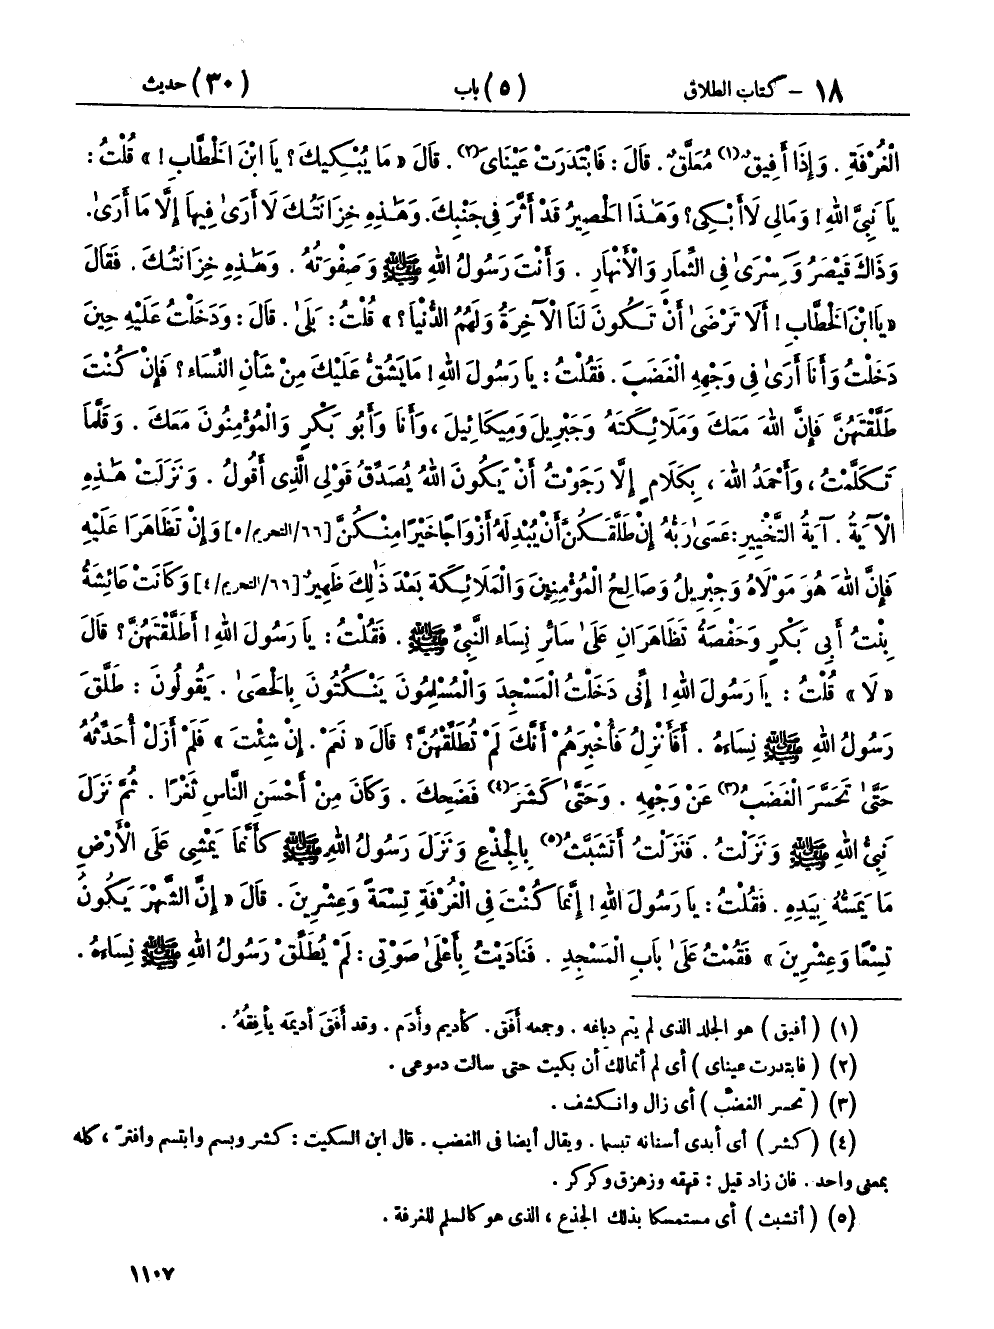 ١٨ – كتاب الطلاق (٥) باب (٣٠) حديث
الْغُرْفَةِ . وَإِذَا أَفِيقٌ(١) مُعَلَّقٌ . قَالَ : فَابْتَدَرَتْ عَيْنَاىَ(٢) . قَالَ « مَا يُبْكِيكَ ؟ يَا ابْنَ الْخَطَّابِ ! » قُلْتُ :
يَا نَبِيَّ اللهِ ! وَمَالِي لَا أَبْكِي ؟ وَهَٰذَا الْحَصِيرُ قَدْ أَثَّرَ فِي جَنْبِكَ. وَهَٰذِهِ خِزَانَتُكَ لَا أَرَىٰ فِيهَا إِلَّا مَا أَرَىٰ.
وَذَاكَ قَيْصَرُ وَكِسْرَىٰ فِي الثِّمَارِ وَالْأَنْهَارِ . وَأَنْتَ رَسُولُ اللهِ ﷺ وَصَفْوَتُهُ . وَهَٰذِهِ خِزَانَتُكَ . فَقَالَ
« يَا ابْنَ الْخَطَّابِ ! أَلَا تَرْضَىٰ أَنْ تَكُونَ لَنَا الْآخِرَةُ وَلَهُمُ الدُّنْيَا ؟ » قُلْتُ : بَلَىٰ . قَالَ : وَدَخَلْتُ عَلَيْهِ حِينَ
دَخَلْتُ وَأَنَا أَرَىٰ فِي وَجْهِهِ الْغَضَبَ . فَقُلْتُ : يَا رَسُولَ اللهِ ! مَا يَشُقُّ عَلَيْكَ مِنْ شَأْنِ النِّسَاءِ ؟ فَإِنْ كُنْتَ
طَلَّقْتَهُنَّ فَإِنَّ اللهَ مَعَكَ وَمَلَائِكَتَهُ وَجِبْرِيلَ وَمِيكَائِيلَ ، وَأَنَا وَأَبُو بَكْرٍ وَالْمُؤْمِنُونَ مَعَكَ . وَقَلَّمَا
تَكَلَّمْتُ ، وَأَحْمَدُ اللهَ ، بِكَلَامٍ إِلَّا رَجَوْتُ أَنْ يَكُونَ اللهُ يُصَدِّقُ قَوْلِي الَّذِي أَقُولُ . وَنَزَلَتْ هَٰذِهِ
الْآيَةُ . آيَةُ التَّخْيِيرِ : عَسَىٰ رَبُّهُ إِنْ طَلَّقَكُنَّ أَنْ يُبْدِلَهُ أَزْوَاجًا خَيْرًا مِنْكُنَّ [٦٦/التحريم/٥] وَإِنْ تَظَاهَرَا عَلَيْهِ
فَإِنَّ اللهَ هُوَ مَوْلَاهُ وَجِبْرِيلُ وَصَالِحُ الْمُؤْمِنِينَ وَالْمَلَائِكَةُ بَعْدَ ذَٰلِكَ ظَهِيرٌ [٦٦/التحريم/٤] وَكَانَتْ عَائِشَةُ
بِنْتُ أَبِي بَكْرٍ وَحَفْصَةُ تَظَاهَرَانِ عَلَىٰ سَائِرِ نِسَاءِ النَّبِيِّ ﷺ . فَقُلْتُ : يَا رَسُولَ اللهِ ! أَطَلَّقْتَهُنَّ ؟ قَالَ
« لَا » قُلْتُ : يَا رَسُولَ اللهِ ! إِنِّي دَخَلْتُ الْمَسْجِدَ وَالْمُسْلِمُونَ يَنْكُتُونَ بِالْحَصَىٰ . يَقُولُونَ : طَلَّقَ
رَسُولُ اللهِ ﷺ نِسَاءَهُ . أَفَأَنْزِلُ فَأُخْبِرَهُمْ أَنَّكَ لَمْ تُطَلِّقْهُنَّ ؟ قَالَ « نَعَمْ . إِنْ شِئْتَ » فَلَمْ أَزَلْ أُحَدِّثُهُ
حَتَّىٰ تَحَسَّرَ الْغَضَبُ(٣) عَنْ وَجْهِهِ . وَحَتَّىٰ كَشَرَ(٤) فَضَحِكَ . وَكَانَ مِنْ أَحْسَنِ النَّاسِ ثَغْرًا . ثُمَّ نَزَلَ
نَبِيُّ اللهِ ﷺ وَنَزَلْتُ . فَنَزَلْتُ أَتَشَبَّثُ(٥) بِالْجِذْعِ وَنَزَلَ رَسُولُ اللهِ ﷺ كَأَنَّمَا يَمْشِي عَلَى الْأَرْضِ
مَا يَمَسُّهُ بِيَدِهِ . فَقُلْتُ : يَا رَسُولَ اللهِ ! إِنَّمَا كُنْتَ فِي الْغُرْفَةِ تِسْعَةً وَعِشْرِينَ . قَالَ « إِنَّ الشَّهْرَ يَكُونُ
تِسْعًا وَعِشْرِينَ » فَقُمْتُ عَلَىٰ بَابِ الْمَسْجِدِ . فَنَادَيْتُ بِأَعْلَىٰ صَوْتِي : لَمْ يُطَلِّقْ رَسُولُ اللهِ ﷺ نِسَاءَهُ .
(١) ( أفيق ) هو الجلد الذى لم يتم دباغه . وجمعه أَفَق . كأديم وأَدَم . وقد أَفَقَ أديمَه يأفِقُهُ .
(٢) ( فابتدرت عيناى ) أى لم أتمالك أن بكيت حتى سالت دموعى .
(٣) ( تحسر الغضب ) أى زال وانكشف .
(٤) ( كشر ) أى أبدى أسنانه تبسما . ويقال أيضا فى الغضب . قال ابن السكيت : كشر وبسم وابتسم وافترّ ، كله
بمعنى واحد . فان زاد قيل : قهقه وزهزق وكركر .
(٥) ( أتشبث ) أى مستمسكا بذلك الجذع ، الذى هو كالسلم للغرفة .
١١٠٧